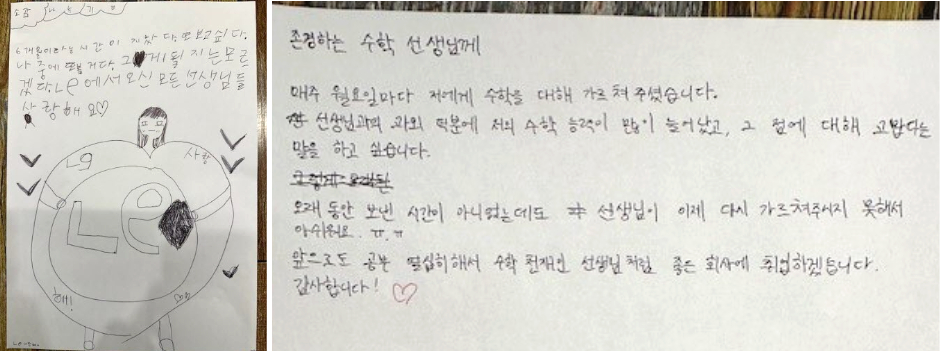 6개월이라는 시간이 지났다. 또 보고싶다.
나중에 또 볼 거다. 그게 될 지는 모르
겠다. LG에서 오신 모든 선생님들
사랑해요♡
LG
사랑
LG
해!
존경하는 수학 선생님께
매주 월요일마다 저에게 수학을 대해 가르쳐 주셨습니다.
선생님과의 과외 덕분에 저의 수학 능력이 많이 늘어났고, 그 점에 대해 고맙다는
말을 하고 싶습니다.
오래 동안 보낸 시간이 아니었는데도 선생님이 이제 다시 가르쳐주시지 못해서
아쉬워요. ㅠ.ㅠ
앞으로도 공부 열심히해서 수학 천재인 선생님처럼 좋은 회사에 취업하겠습니다.
감사합니다! ♡